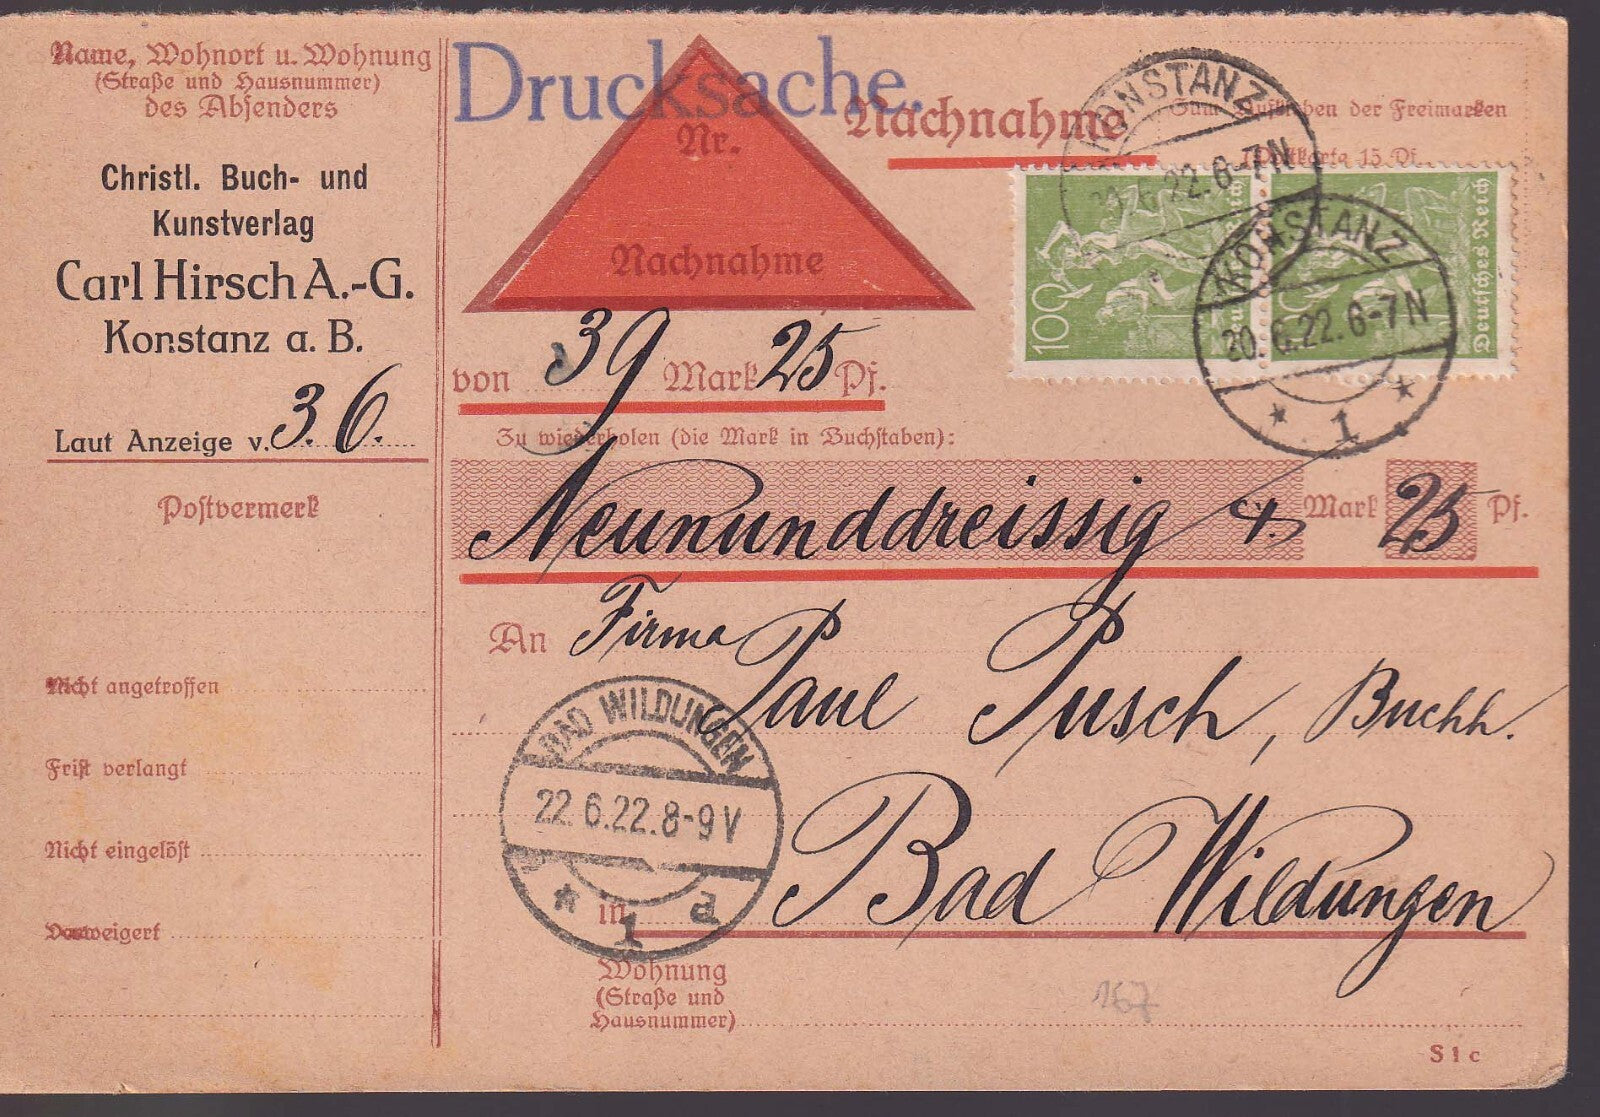 Name, Wohnort u. Wohnung
(Straße und Hausnummer)
des Absenders
Christl. Buch- und
Kunstverlag
Carl Hirsch A.-G.
Konstanz a. B.
Laut Anzeige v. 3. 6.
Postvermerk
Nicht angetroffen
Frist verlangt
Nicht eingelöst
Verweigert
Drucksache.
Nachnahme
Zum Aufkleben der Freimarken
(Postkarte 15 Pf.
Nr.
Nachnahme
KONSTANZ
20.6.22.6-7N
100
Deutsches Reich
KONSTANZ
20.6.22.6-7N
* 1 *
von 39 Mark 25 Pf.
Zu wiederholen (die Mark in Buchstaben):
Neununddreissig Mark 25 Pf.
An Firma
Paul Pusch, Buchh.
BAD WILDUNGEN
22.6.22.8-9V
* 1 a
in Bad Wildungen
Wohnung
(Straße und
Hausnummer)
167
S 1 c